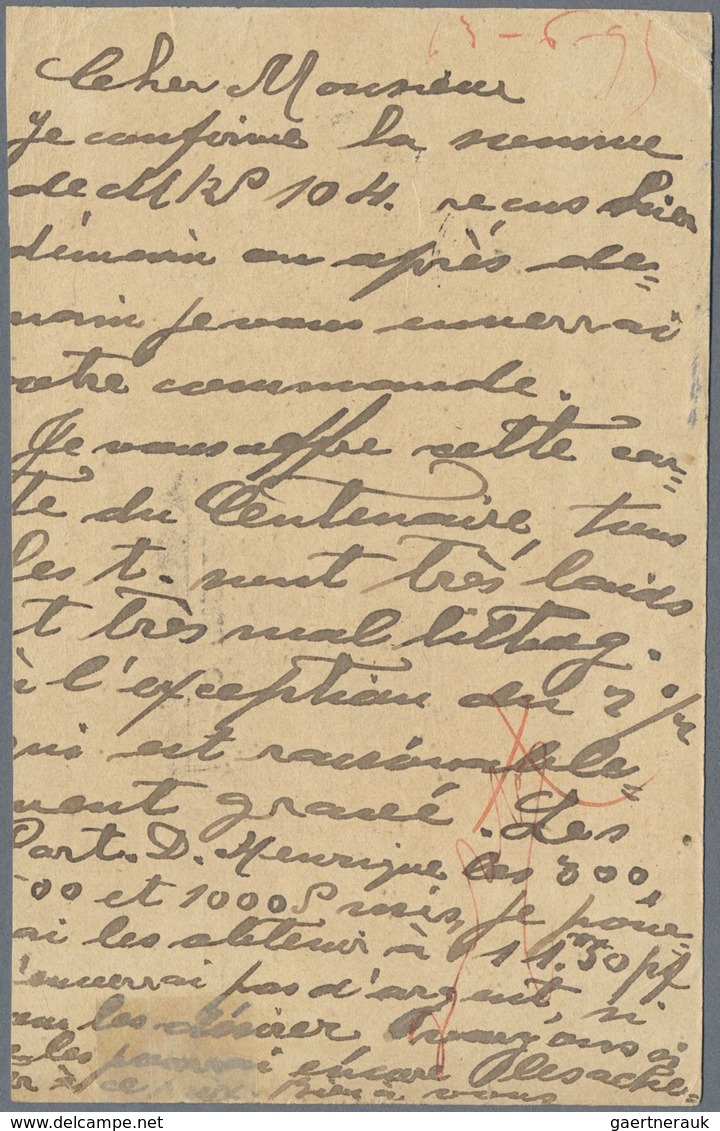 13-6-95
Cher Monsieur
Je confirme la somme
de MkS 104. reçus hier
démain ou après de=
main je vous enverrai
votre commande.
Je vous offre cette car=
te du Centenaire, tous
les t. sont très laids
t très mal lithog.
à l'exception du
qui est raisonnable=
ment gravé. Les
Port. D. Henrique les 300,
500 et 1000 S mis, je pour=
ai les obtenir à 11.50 pf
enverrai pas d'argent, si
les désirer
les pourrai encore
ce prix. Bien à vous
gaertnerauk